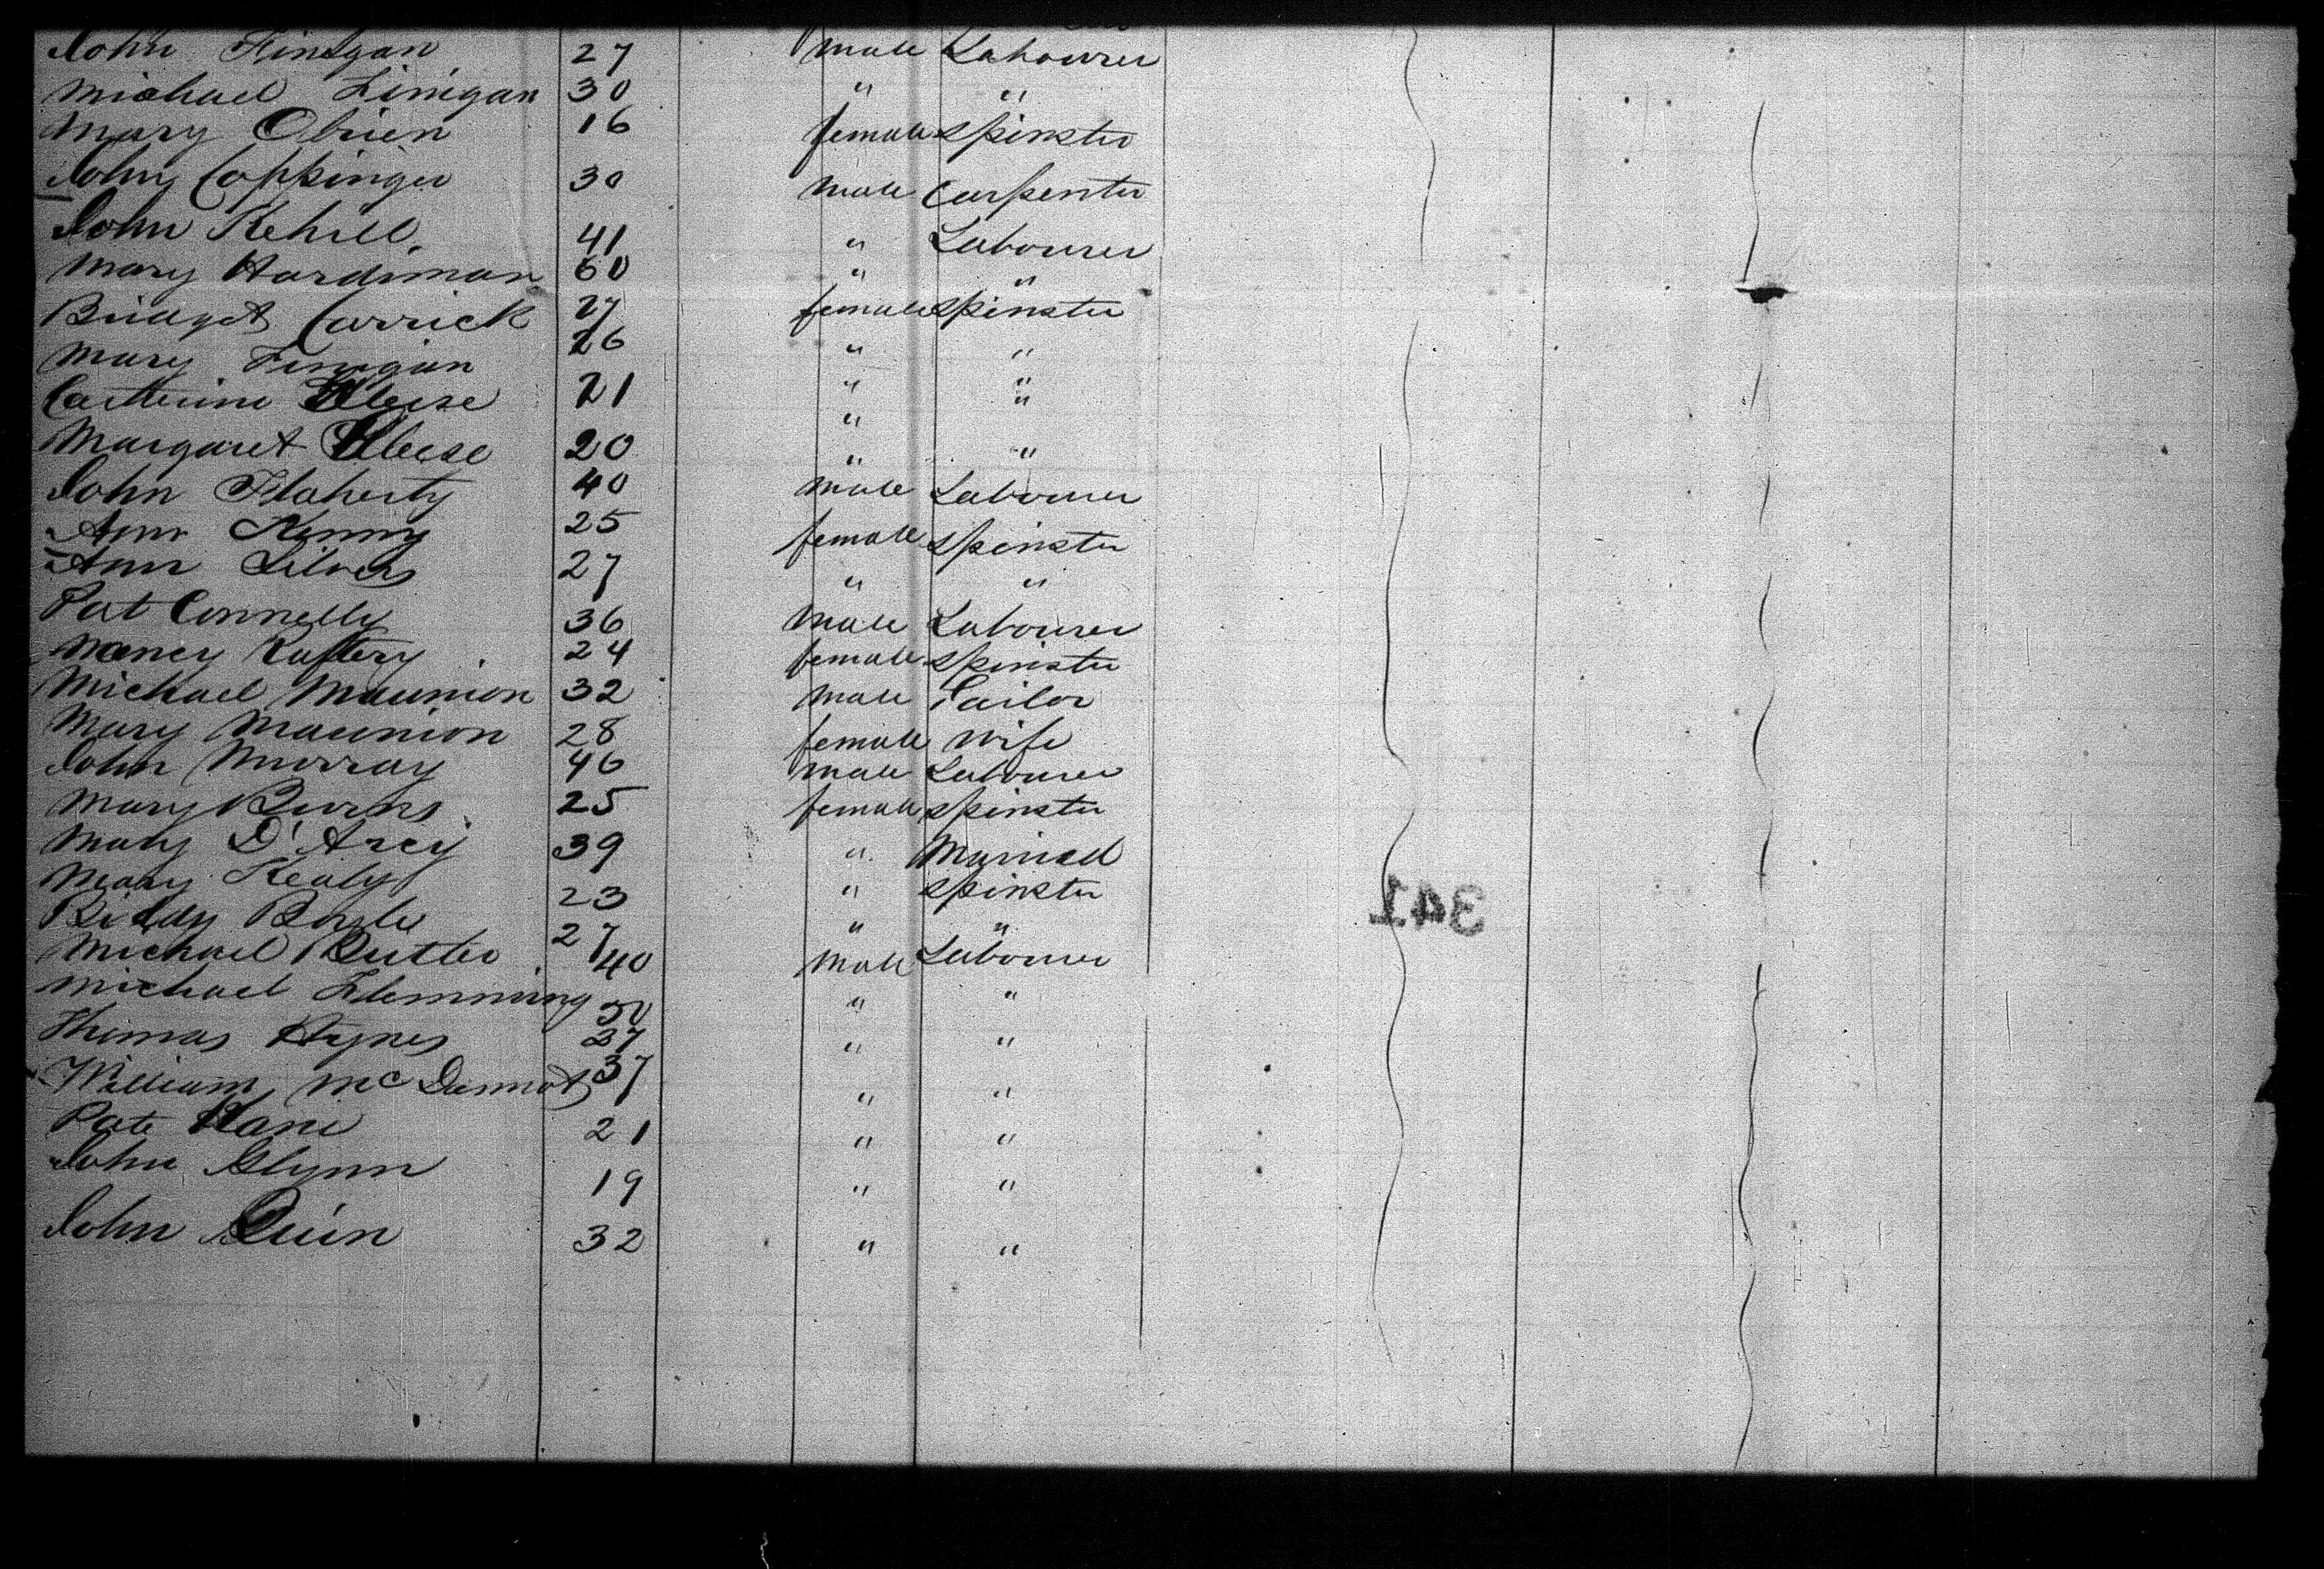 John Finegan 27 male Labourer
Michael Finigan 30 " "
Mary Obrien 16 female Spinster
John Coppinger 30 male Carpenter
John Kehill 41 " Labourer
Mary Hardiman 60 " "
Bridget Carrick 27 female Spinster
Mary Finigan 26 " "
Catherine 21 " "
" "
Margaret 20 " "
John Flaherty 40 male Labourer
Ann Kenny 25 female Spinster
Ann 27 " "
Pat Connelly 36 male Labourer
Nancy Raftery 24 female Spinster
Michael Maunion 32 male Tailor
Mary Maunion 28 female Wife
John Murray 46 male Labourer
Mary Burns 25 female Spinster
Mary D'Arcy 39 " Married
Mary Kealy 23 " Spinster
Biddy Boyle 27 " "
Michael Butler 40 male Labourer
Michael Flemming " "
Thomas Hynes 37 " "
William McDermot 37 " "
Pat 21 " "
John Glynn 19 " "
John Quin 32 " "
341